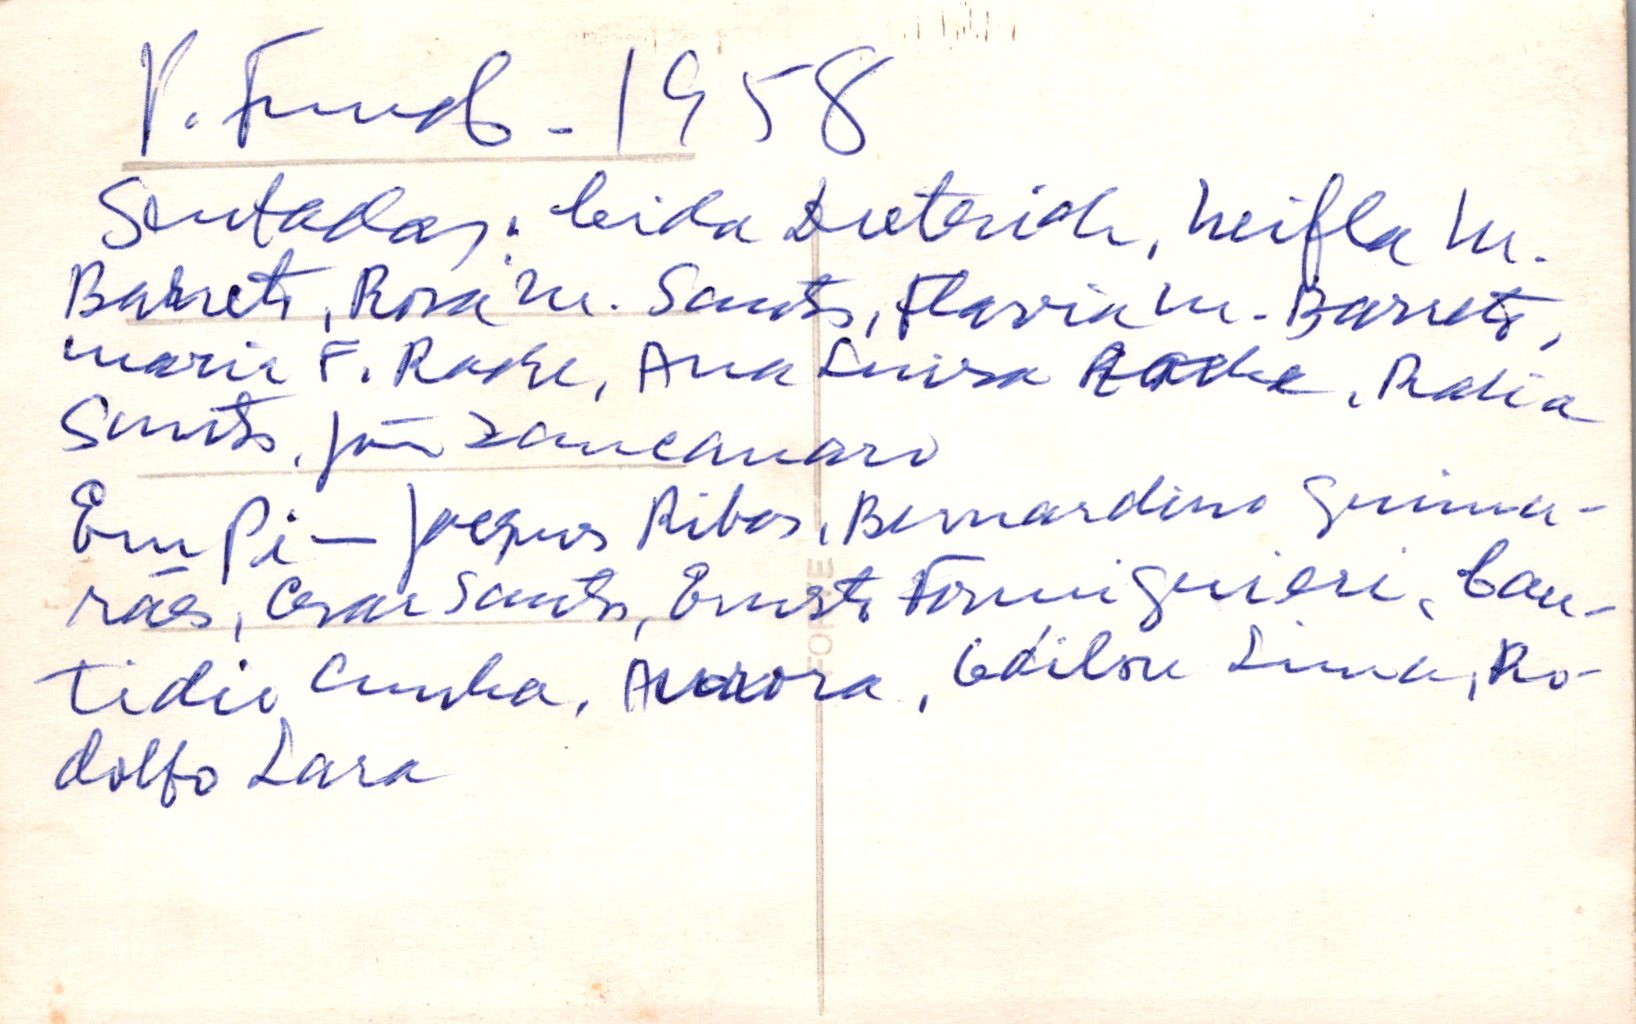 P. Fundo - 1958
Sentadas: Ceida Dieterich, Neifla M.
Barreto, Rosa M. Santos, Flavia M. Barreto,
Maria F. Rache, Ana Luisa Rache, Radia
Santos, João Zancanaro
Em Pé - Jacques Ribas, Bernardino Guima-
rães, Cesar Santos, Ernesto Formiguieri, Can-
tidio Cunha, Aurora, Edilon Lima, Ro-
dolfo Lara
FORTE